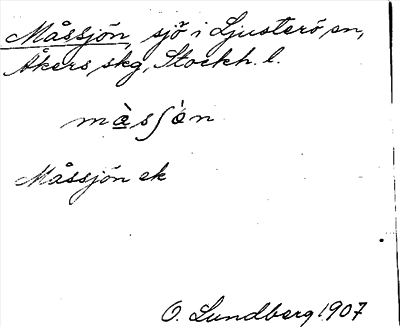 Måssjön, sjö i Ljusterö sn,
Åkers skg, Stockh. l.
màsʃòn
Måssjön ek
O. Lundberg 1907